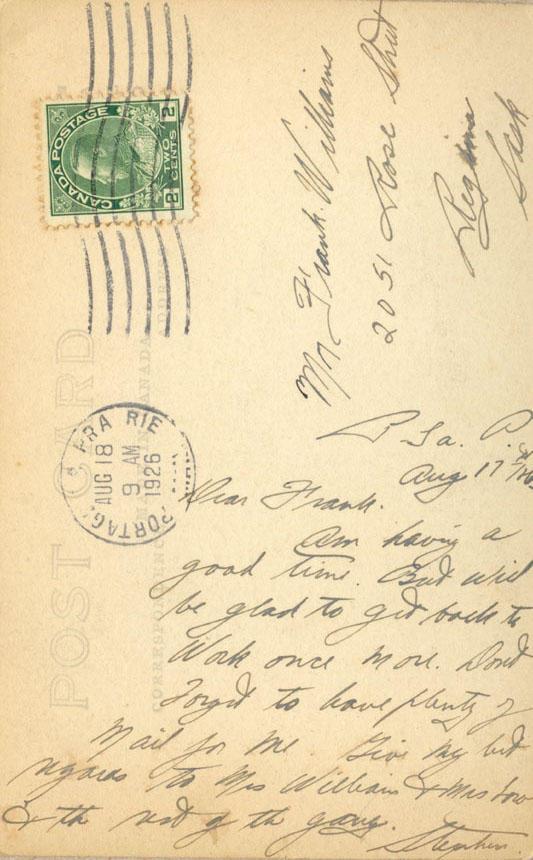 CANADA POSTAGE
2 TWO CENTS 2
POST CARD
PORTAGE LA PRAIRIE
AUG 18
9 AM
1926
MAN
Mr Frank Williams
2051 Rose Street
Regina
Sask
P. La. P.
Aug 17th
Dear Frank.
Am having a
good time. But will
be glad to get back to
Work once more. Dont
Forget to have plenty of
Mail for me Give my best
regards to Mrs Williams & Mrs
& the rest of the gang.
Stephen.